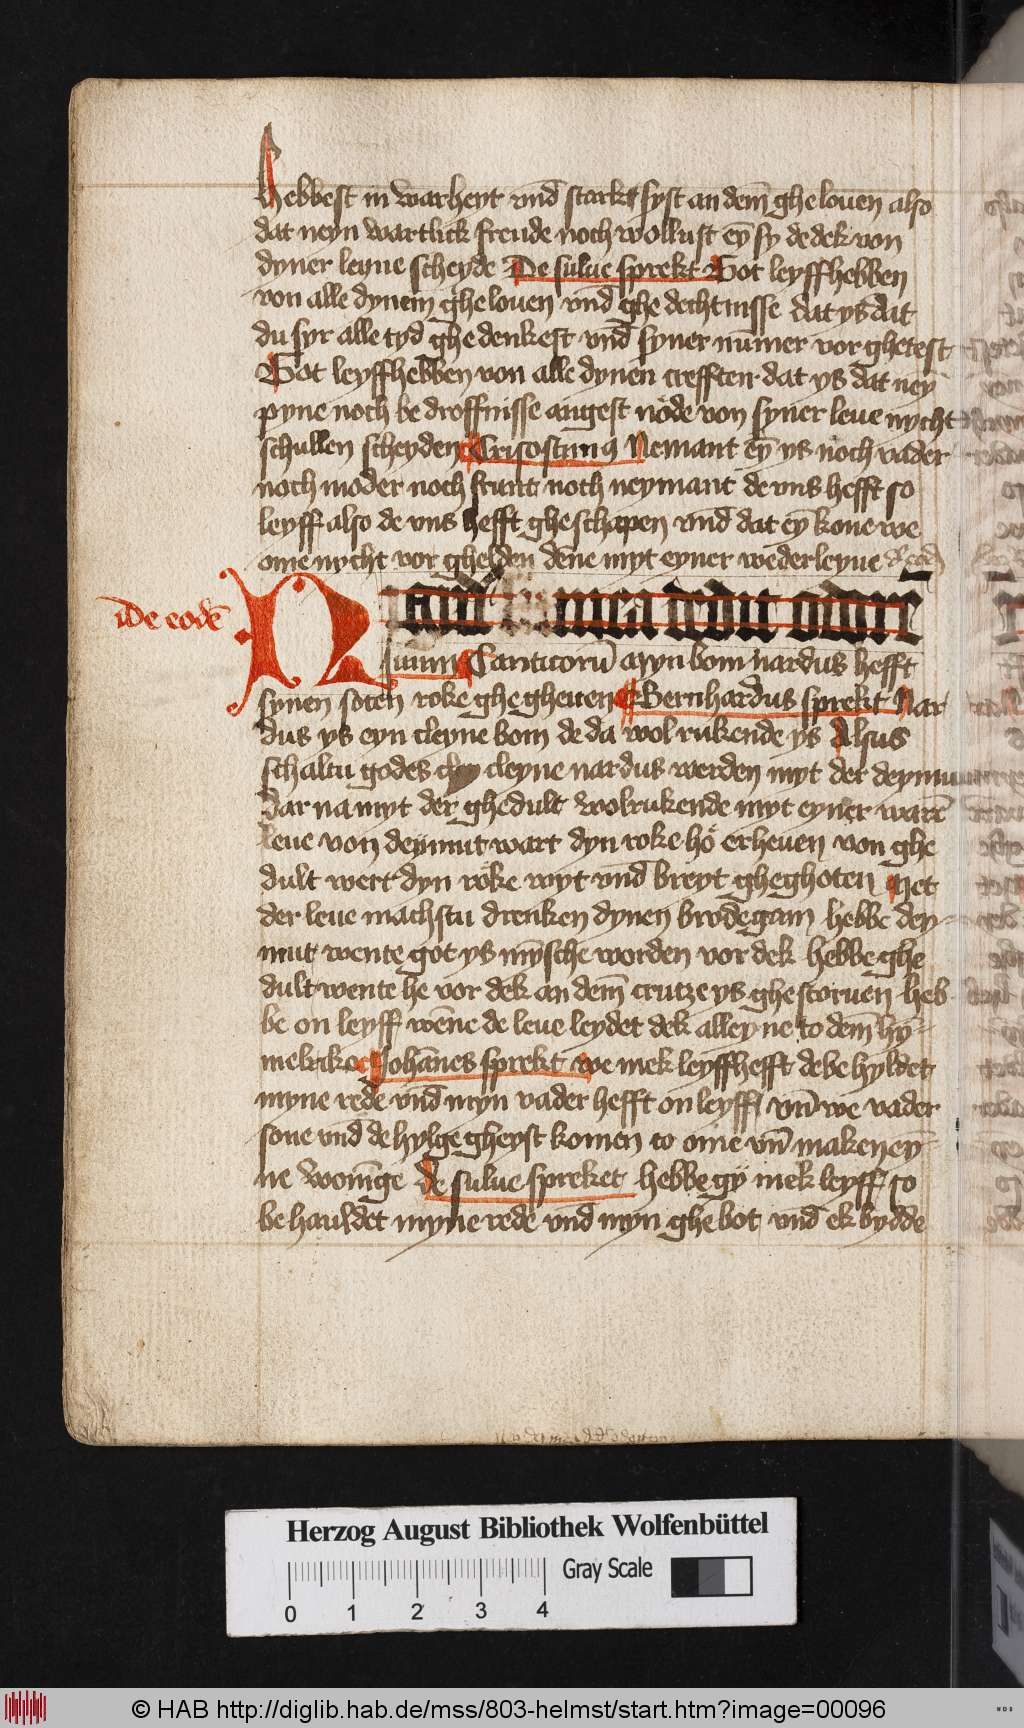 hebbest in warheyt vnd starke syst an dem̄ ghe louen also
dat neyn wartlick freude noch wollust ey̅ sy de dek von
dyner leyue scheyde De sulue sprekt Got leyffhebben
von alle dynem ghe louen vnd ghe dechtnisse dat ys dat
du syr alle tyd ghe denkest vnd syner num̄er vor ghetest
Got leyffhebben von alle dynen crefften dat ys dat ney̅
pyne noch be droffnisse angest node von syner leue nycht
schullen scheyden Crisostim9 Nemant ey̅ ys noch vader
noch moder noch frunt noch neymant de vns hefft so
leyff also de vns hefft gheschapen vnd dat ey̅ kone we
ome nycht vor ghelden dene myt eyner wederleyue
De eode̅
Nard mea dedit odore
suum Canticoru̅ a myn bom nardus hefft
synen soten roke ghegheuen Bernhardus sprekt Nar
dus ys eyn cleyne bom de da wol rukende ys Alsus
schaltu godes cleyne nardus werden myt der deymu
dar na myt der ghedult wolrukende myt eyner ware̅
leue von deymut wart dyn roke ho erheuen von ghe
dult wert dyn roke wyt vnd breyt gheghoten Met
der leue machstu drenken dynen brodegam hebbe dey-
mut wente got ys my̅sche worden vor dek hebbe ghe
dult wente he vor dek an dem̄ crutze ys ghestoruen heb
be on leyff we̅ne de leue leydet dek alleyne to dem̄ hy̅-
melrike Joha̅nes sprekt we mek leyffhefft de behyldet
myne rede vnd myn vader hefft on leyff vn̄ we vader
sone vnd de hylge gheyst komen to ome vn̄ maken ey-
ne woni̅ge de sulue spreket hebbe gy mek leyff so
behauldet myne rede vnd myn ghebot vnd ek bydde
Herzog August Bibliothek Wolfenbüttel
Gray Scale
0 1 2 3 4
© HAB http://diglib.hab.de/mss/803-helmst/start.htm?image=00096